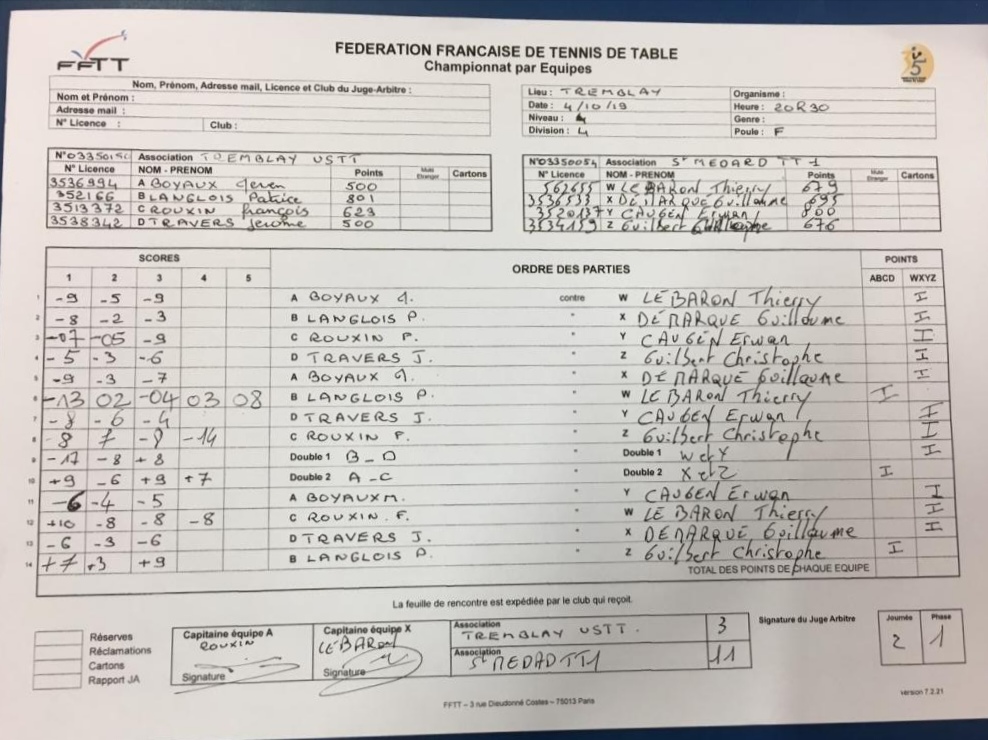 FFTT
FEDERATION FRANCAISE DE TENNIS DE TABLE
Championnat par Equipes
Nom, Prénom, Adresse mail, Licence et Club du Juge-Arbitre :
Nom et Prénom :
Adresse mail :
N° Licence : Club :
Lieu : TREMBLAY Organisme :
Date : 4/10/19 Heure : 20R30
Niveau : 4 Genre :
Division : 4 Poule : F
Association TREMBLAY USTT
N° Licence NOM - PRENOM Points Muté Etranger Cartons
3536994 A BOYAUX 500
352166 B LANGLOIS Patrice 801
3513372 C ROUXIN François 623
3538342 D TRAVERS Jerome 500
N°03350054 Association St MEDARD TT 1
N° Licence NOM - PRENOM Points Muté Etranger Cartons
562655 W LE BARON Thierry 679
3536533 X DEMARQUE Guillaume 695
3520137 Y CAUGEN Erwan 800
3534159 Z Guilbert 676
SCORES ORDRE DES PARTIES POINTS
1 2 3 4 5 ABCD WXYZ
1 -9 -5 -9 A BOYAUX J. contre W LE BARON Thierry I
2 -8 -2 -3 B LANGLOIS P. " X DEMARQUE Guillaume I
3 -07 -05 -9 C ROUXIN F. " Y CAUGEN Erwan I
4 -5 -3 -6 D TRAVERS J. " Z Guilbert Christophe I
5 -9 -3 -7 A BOYAUX J. " X DEMARQUE Guillaume I
6 -13 02 -04 03 08 B LANGLOIS P. " W LE BARON Thierry I
7 -8 -6 -4 D TRAVERS J. " Y CAUGEN Erwan I
8 -8 7 -8 -14 C ROUXIN F. " Z Guilbert Christophe I
9 -17 -8 +8 Double 1 B_D " Double 1 W et Y I
10 +9 -6 +9 +7 Double 2 A-C " Double 2 X et Z I
11 -6 -4 -5 A BOYAUX M. " Y CAUGEN Erwan I
12 +10 -8 -8 -8 C ROUXIN. F. " W LE BARON Thierry I
13 -6 -3 -6 D TRAVERS J. " X DEMARQUE Guillaume I
14 +7 +3 +9 B LANGLOIS P. " Z Guilbert Christophe I
TOTAL DES POINTS DE CHAQUE EQUIPE
La feuille de rencontre est expédiée par le club qui reçoit.
Réserves
Réclamations
Cartons
Rapport JA
Capitaine équipe A
ROUXIN
Signature
Capitaine équipe X
LE BARON
Signature
Association
TREMBLAY USTT. 3
Association
St MEDAD TT1 11
Signature du Juge Arbitre
Journée Phase
2 1
FFTT – 3 rue Dieudonné Costes – 75013 Paris
version 7.2.21